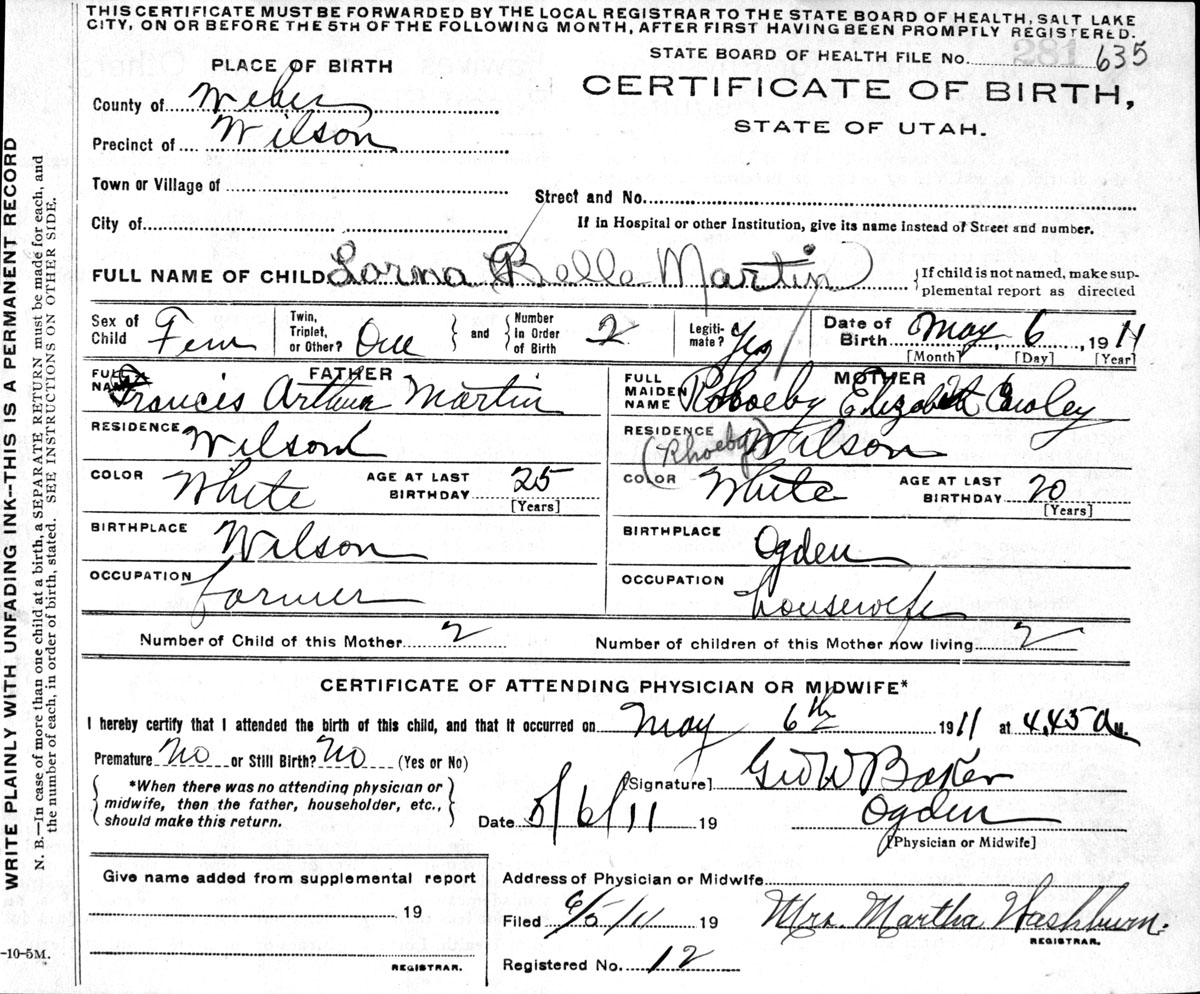 THIS CERTIFICATE MUST BE FORWARDED BY THE LOCAL REGISTRAR TO THE STATE BOARD OF HEALTH, SALT LAKE
CITY, ON OR BEFORE THE 5TH OF THE FOLLOWING MONTH, AFTER FIRST HAVING BEEN PROMPTLY REGISTERED.
STATE BOARD OF HEALTH FILE No. 281 635
PLACE OF BIRTH
CERTIFICATE OF BIRTH,
STATE OF UTAH.
County of Weber
Precinct of Wilson
Town or Village of
Street and No.
City of
If in Hospital or other Institution, give its name instead of Street and number.
FULL NAME OF CHILD Lorma Belle Martin
{If child is not named, make sup-
plemental report as directed
Sex of Child Fem
Twin, Triplet, or Other? One
and
Number in Order of Birth 2
Legiti- mate? Yes
Date of Birth May 6, 1911
[Month] [Day] [Year]
FATHER
FULL NAME Francis Arthur Martin
RESIDENCE Wilson
COLOR White
AGE AT LAST BIRTHDAY 25
[Years]
BIRTHPLACE Wilson
OCCUPATION Farmer
MOTHER
FULL MAIDEN NAME Rhoeby Elizabeth
RESIDENCE Wilson
(Rhoeby)
COLOR White
AGE AT LAST BIRTHDAY 20
[Years]
BIRTHPLACE Ogden
OCCUPATION housewife
Number of Child of this Mother 2
Number of children of this Mother now living 2
CERTIFICATE OF ATTENDING PHYSICIAN OR MIDWIFE*
I hereby certify that I attended the birth of this child, and that it occurred on May 6th 1911 at 4.45 a M.
Premature No or Still Birth? No (Yes or No)
*When there was no attending physician or
midwife, then the father, householder, etc.,
should make this return.
[Signature] Geo W Baker
Date 5/6/11 19
Ogden
[Physician or Midwife]
Give name added from supplemental report
19
REGISTRAR.
Address of Physician or Midwife
Filed 6/5/11 19
Mrs. Martha Washburn.
REGISTRAR.
Registered No. 12
-10-5M.
WRITE PLAINLY WITH UNFADING INK--THIS IS A PERMANENT RECORD
N. B.—In case of more than one child at a birth, a SEPARATE RETURN must be made for each, and
the number of each, in order of birth, stated. SEE INSTRUCTIONS ON OTHER SIDE.